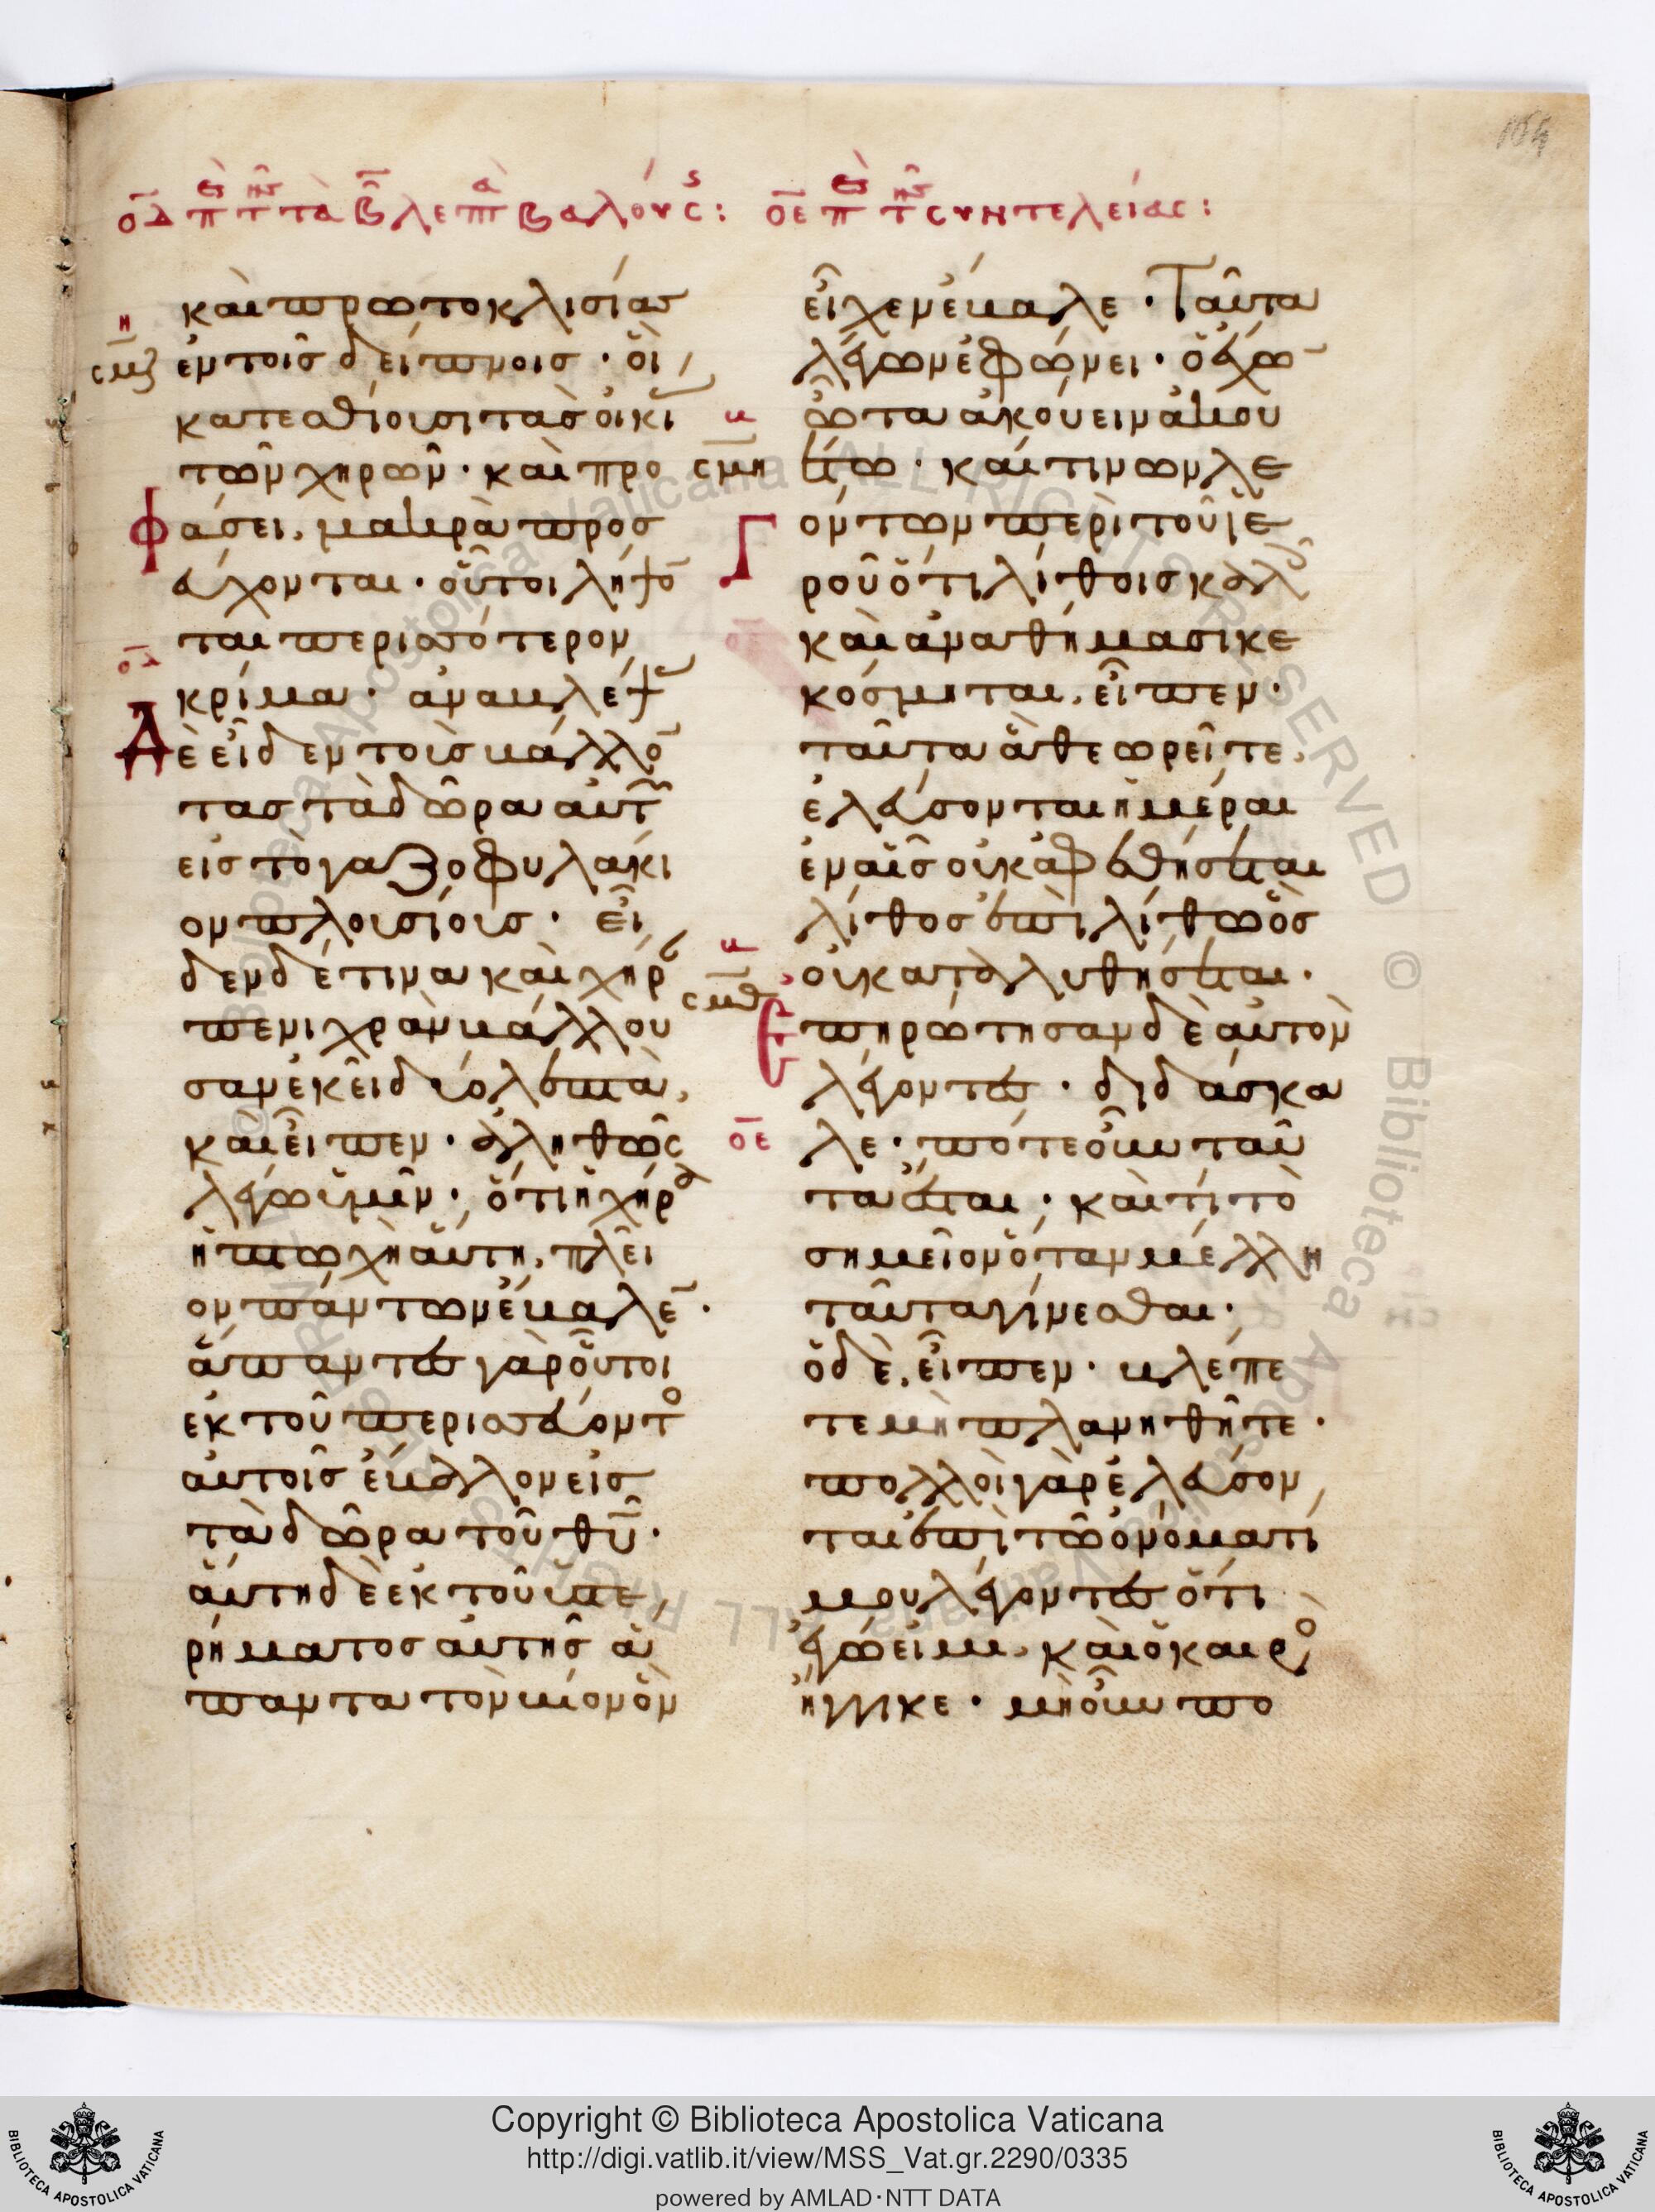 164
ο̄δ π(ερὶ) τ(ῆς) τὰ β̄ λεπ(τὰ) βαλούσ(ης): ο̄ε π(ερὶ) τ(ῆς) συντελείας:
καὶ πρωτοκλισίασ
ἐν τοῖσ δείπνοισ · ὃι
κατεσθίουσι τὰσ ὀικί
τῶν χηρῶν · καὶ προ
φάσει, μακρὰ προσ
εύχονται · οὗτοι λήψο̄
ται περισσότερον
κρίμα · ἀναβλέψ
ὲ εἶδεν τοὺσ βάλλο̄
τασ τὰ δῶρα αὐτ
εἰσ τὸ γαζοφυλάκι
ον πλουσίουσ · εἶ
δεν δέ τινα καὶ χήρ
πενιχρὰν βάλλου
σαν ἐκεῖ δύο λεπτὰ,
καὶ εἶπεν · ἀληθῶς
λέγω ὑμῖν · ὅτι ἡ χήρα
ἡ πτωχὴ αὕτη, πλεῖ
ον πάντων ἔβαλε̄ ·
ἅπαντεσ γὰρ οὗτοι
ἐκ τοῦ περισσεύοντο
αὐτοῖσ ἔβαλον εἰσ
τὰ δῶρα τοῦ θῡ ·
αὕτη δὲ ἐκ τοῦ ὑστε
ρήματοσ αὐτῆσ ἅ
παντα τὸν βίον ὃν
εἶχεν ἔβαλε · Ταῦτα
λέγων ἐφώνει · ὁ ἔχω̄
ὦτα ἀκούειν ἀκου
έτω · καί τινων λε
γόντων περὶ τοῦ ἱε
ροῦ ὅτι λίθοισ καλ
καὶ ἀναθήμασι κε
κόσμηται, εἶπεν ·
ταῦτα ἃ θεωρεῖτε,
ἐλεύσονται ἡμέραι
ἐν αἷσ οὐκ ἀφεθήσεται
λίθοσ ἐπὶ λίθω ὃσ
οὐ καταλυθήσεται ·
Ἐπηρώτησαν δὲ αὐτὸν
λέγοντεσ · διδάσκα
λε · πότε οὖν ταῦ
τα ἔσται · καὶ τί τὸ
σημεῖον ὅταν μέλλη
ταῦτα γίνεσθαι ·
ὁ δὲ, εἶπεν · βλέπε
τε μὴ πλανηθῆτε ·
πολλοὶ γὰρ ἐλεύσον
ται ἐπὶ τῶ ὀνόματί
μου λέγοντεσ ὅτι
ἐγώ εἰμι, καὶ ὁ καιρὸ
ἤγγικε · μὴ οὖν πο
Copyright © Biblioteca Apostolica Vaticana
http://digi.vatlib.it/view/MSS_Vat.gr.2290/0335
powered by AMLAD·NTT DATA